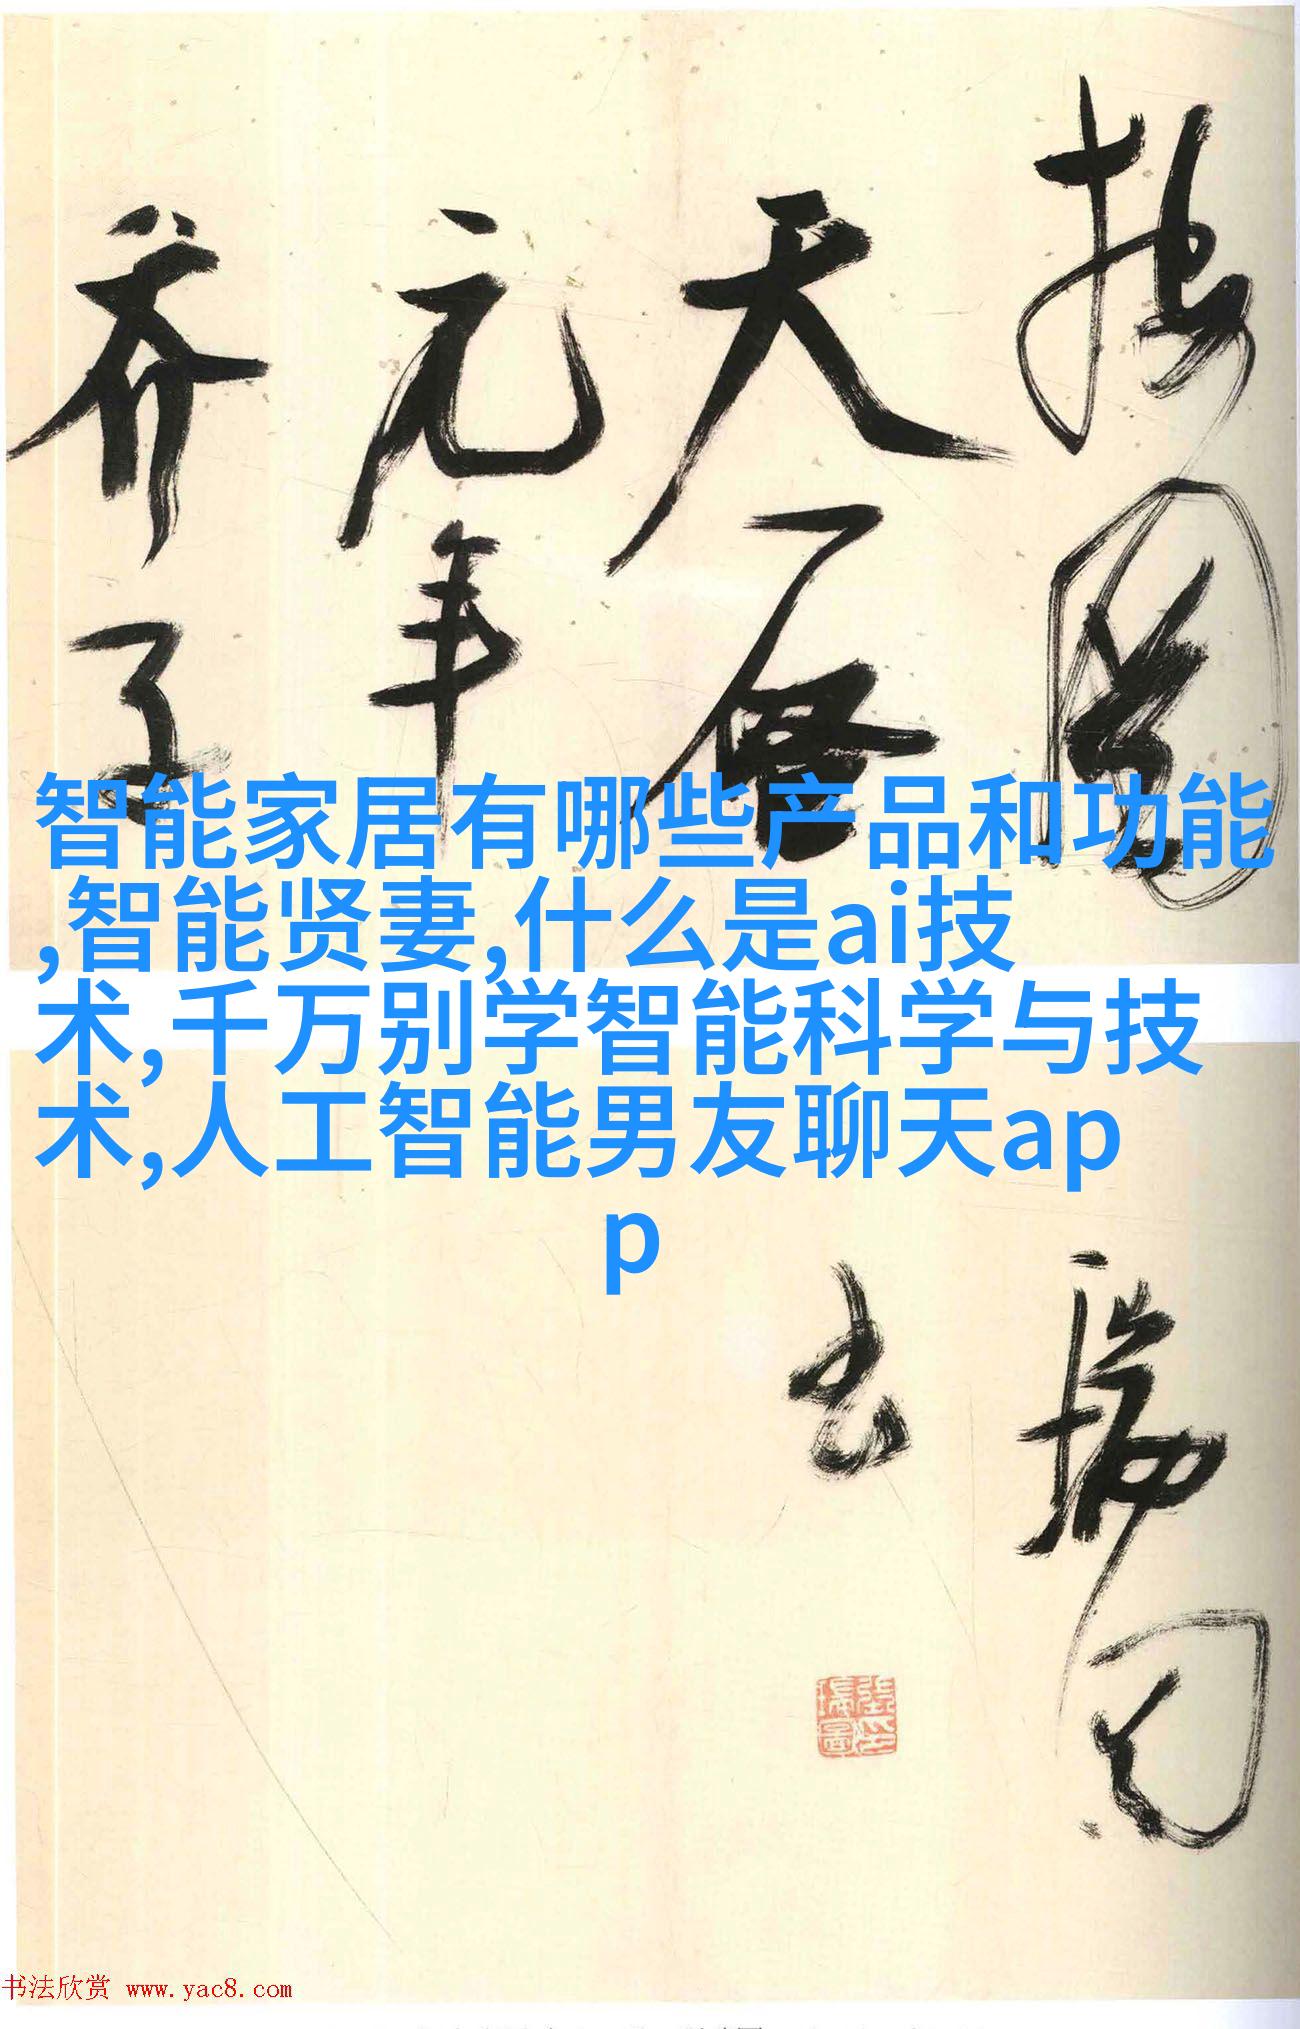 天启
元年
智能家居有哪些产品和功能
,智能贤妻,什么是ai技
术,千万别学智能科学与技
术,人工智能男友聊天ap
p
瑞图
书
書法欣赏 www.yac8.com